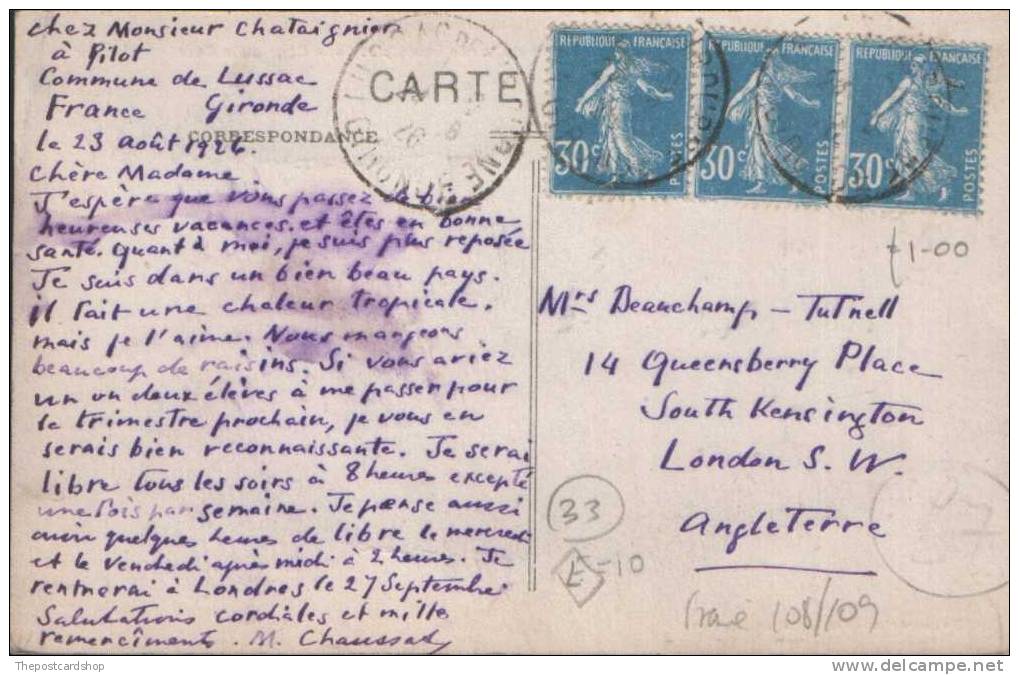 chez Monsieur Chataignier
à Pilot
Commune de Lussac
France Gironde
le 23 août 1926.
Chère Madame
J'espère que vous passez de b
heureuses vacances. et êtes en bonne
santé. Quant à moi, je suis plus reposée
Je suis dans un bien beau pays.
il fait une chaleur tropicale.
mais je l'aime. Nous mangeons
beaucoup de raisins. Si vous aviez
un ou deux élèves à me passer pour
le trimestre prochain, je vous en
serais bien reconnaissante. Je serai
libre tous les soirs à 8 heures excepté
une fois par semaine. Je pense aussi
avoir quelques heures de libre le mercredi
et le vendredi après midi à 2 heures. Je
rentrerai à Londres le 27 Septembre
Salutations cordiales et mille
remerciments. M. Chaussad
CARTE
CORRESPONDANCE
REPUBLIQUE FRANÇAISE
30c
POSTES
REPUBLIQUE FRANÇAISE
30c
POSTES
REPUBLIQUE FRANÇAISE
30c
POSTES
1-00
Mrs Beauchamp - Tufnell
14 Queensberry Place
South Kensington
London S. W.
Angleterre
33
E-10
108/109
Thepostcardshop
delcampe.net